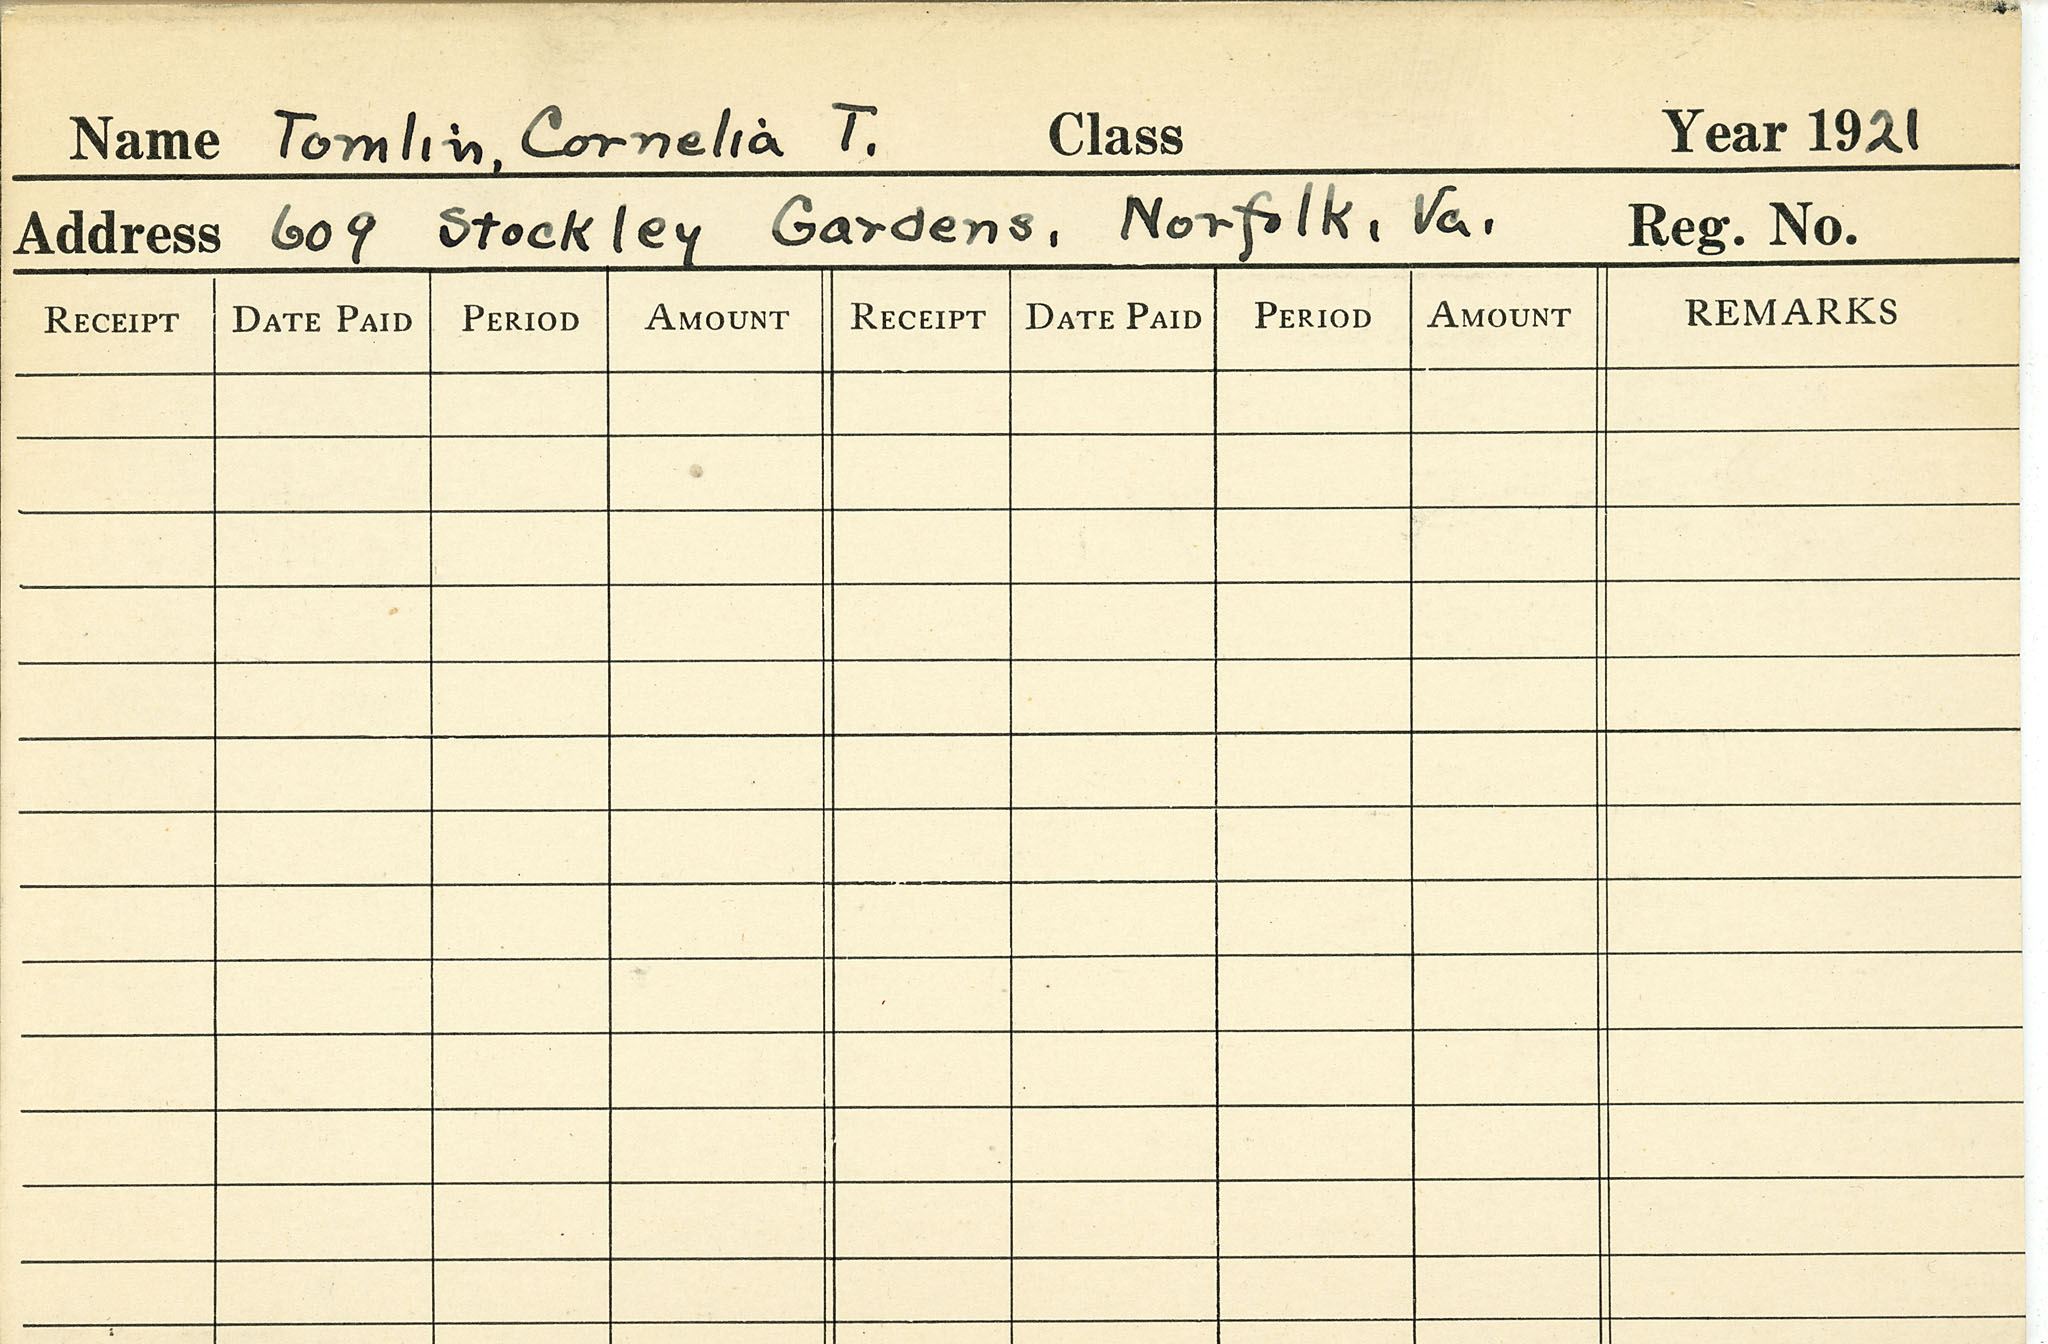 Name Tomlin, Cornelia T. Class Year 1921
Address 609 Stockley Gardens, Norfolk, Va. Reg. No.
RECEIPT DATE PAID PERIOD AMOUNT RECEIPT DATE PAID PERIOD AMOUNT REMARKS